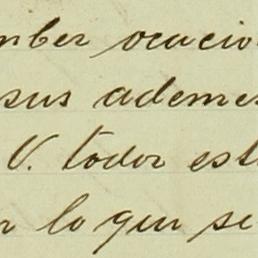 mber ocacio
sus ademe
V. todor est
r lo qeu se